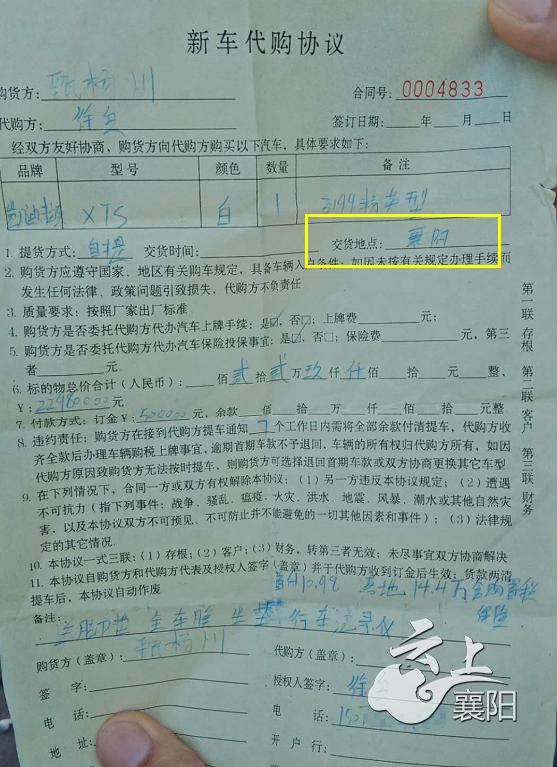 新车代购协议
购货方：甄杨川
合同号：0004833
代购方：徐
签订日期：　年　月　日
经双方友好协商，购货方向代购方购买以下汽车，具体要求如下：
品牌 型号 颜色 数量 备注
凯迪拉克 XTS 白 1
1. 提货方式：自提 交货时间： 交货地点：襄阳
2. 购货方应遵守国家、地区有关购车规定，具备车辆入户条件；如因未按有关规定办理手续而
发生任何法律、政策问题引致损失，代购方不负责任
3. 质量要求：按照厂家出厂标准
4. 购货方是否委托代购方代办汽车上牌手续：是☑，否□；上牌费　元；
5. 购货方是否委托代购方代办汽车保险投保事宜：是☑，否□；保险费　元，第三
者　元。
6. 标的物总价合计（人民币）：　佰贰拾贰万玖仟　佰　拾　元 整，
¥：　元
7. 付款方式：订金¥：　元，余款　佰　拾　万　仟　佰　拾　元整
8. 违约责任：购货方在接到代购方提车通知7个工作日内需将全部余款付清提车，代购方收
齐全款后办理车辆购税上牌事宜，逾期首期车款不予退回，车辆的所有权归代购方所有，如因
代购方原因致购货方无法按时提车，则购货方可选择退回首期车款或双方协商更换其它车型
9. 在下列情况下，合同一方或双方有权解除本协议；（1）另一方违反本协议规定；（2）遭遇
不可抗力（指下列事件：战争、骚乱、瘟疫、火灾、洪水、地震、风暴、潮水或其他自然灾
害，以及本协议双方不可预见、不可防止并不能避免的一切其他因素和事件）；（3）法律规
定的其它情况
10. 本协议一式三联：（1）存根；（2）客户；（3）财务，转第三者无效；未尽事宜双方协商解决
11. 本协议自购货方和代购方代表及授权人签字（盖章）并于代购方收到订金后生效；货款两清
提车后，本协议自动作废
首付10.98 14.4万 购置税
保险
备注：
全车膜 坐垫 行车记录仪
购货方（盖章）：甄杨川
代购方（盖章）：
签字：
授权人签字：徐
电话：
电话：
地址：
开户行：
第一联 存根 第二联 客户 第三联 财务
云上
襄阳